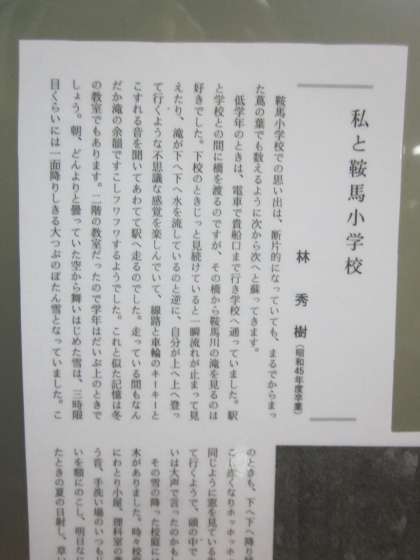 私と鞍馬小学校
林 秀樹(昭和45年度卒業)
鞍馬小学校での思い出は、断片的になっていても、まるでからまっ
た蔦の葉でも数えるように次から次へと蘇ってきます。
低学年のときは、電車で貴船口まで行き学校へ通っていました。駅
と学校との間に橋を渡るのですが、その橋から鞍馬川の滝を見るのは
好きでした。下校のときじっと見続けていると一瞬流れが止まって見
えたり、滝が下へ下へ水を流しているのと逆に、自分が上へ上へ登っ
て行くような不思議な感覚を楽しんでいて、線路と車輪のキーキーと
こすれる音を聞いてあわてて駅へ走るのでした。走っている間もなん
だか滝の余韻ですこしフワフワするようでした。これと似た記憶は冬
の教室でもあります。二階の教室だったので学年はだいぶ上のときで
しょう。朝、どんよりと曇っていた空から舞いはじめた雪は、三時限
目くらいには一面降りしきる大つぶのぼたん雪となっていました。こ
のときも、下へ下へ降り
こし赤くなりホッホッホッ
同じように窓を見ている
て行くようで、頭の中で
いは大声で言ったのかもし
その雪の降った校庭に
木がありました。時々校
にわとり小屋、理科室の
う音、手洗い場のいつも
いを頬にのこし、明日な
たときの夏の日射し、章い